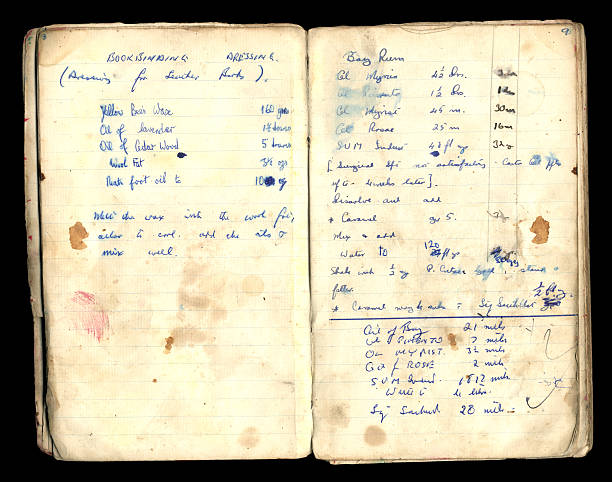 3
BOOKBINDING DRESSING.
(Dressing for Leather Books).
Yellow Bees Wax 160 grs
Oil of lavender
Oil of Cedar Wood 5
Wool Fat 3½ ozs
Neats foot oil to oz
Melt the wax with the wool fat,
allow to cool. add the oils &
mix well.
9
Bay Rum
Ol Myrcia 4½ Drs.
Ol Pimento 1½ Drs.
Ol Myrist 45 m. 30m
Ol Rosae 25 m 16m
SVM Indust fl oz 32oz
[Surgical Spt not satisfactory
weeks later].
Dissolve and add
* Caramel grs 5.
Mix & add
Water to 120 fl oz
Shake with ½ oz stand &
filter.
* Caramel
½ fl oz
Oil of Bay 21 mils
Ol PIMENTO 7 mils
OL MYRIST. 3½ mils
Oil of ROSE 2 mils
SVM Indust. 1812 mils
Water to 4 litres.
28 mils